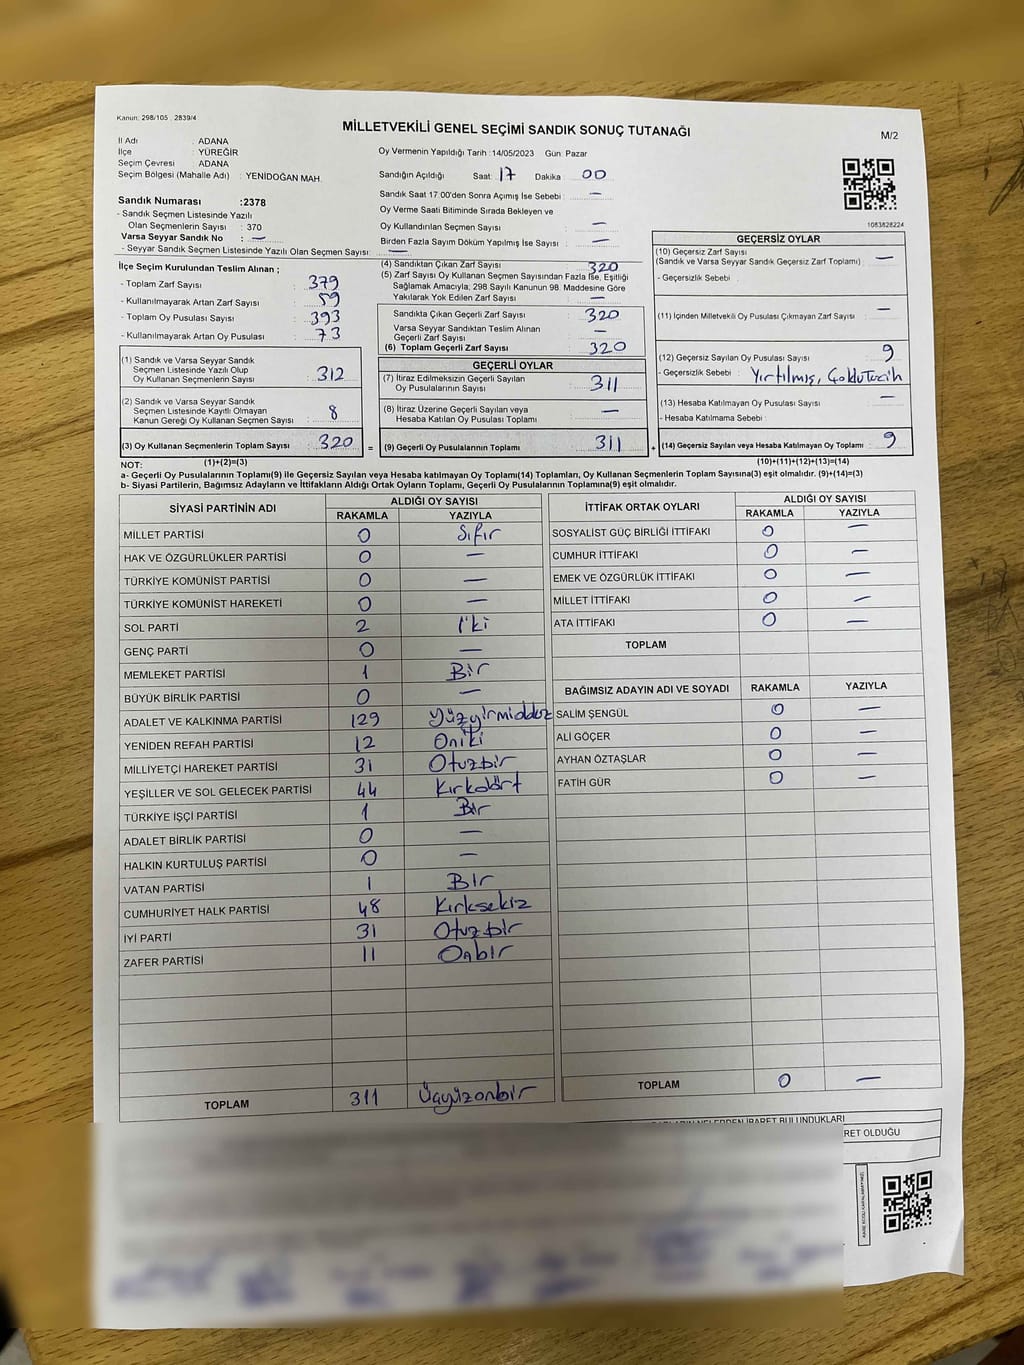 Kanun: 298/105 , 2839/4
MİLLETVEKİLİ GENEL SEÇİMİ SANDIK SONUÇ TUTANAĞI
M/2
İl Adı : ADANA
İlçe : YÜREĞİR
Seçim Çevresi : ADANA
Seçim Bölgesi (Mahalle Adı) : YENİDOĞAN MAH.
Oy Vermenin Yapıldığı Tarih :14/05/2023 Gün: Pazar
Sandığın Açıldığı Saat: 17 Dakika: 00
Sandık Saat 17:00'den Sonra Açımış İse Sebebi : —
Oy Verme Saati Bitiminde Sırada Bekleyen ve
Oy Kullandırılan Seçmen Sayısı : —
Birden Fazla Sayım Döküm Yapılmış İse Sayısı : —
1083828224
Sandık Numarası :2378
- Sandık Seçmen Listesinde Yazılı
Olan Seçmenlerin Sayısı : 370
Varsa Seyyar Sandık No : —
- Seyyar Sandık Seçmen Listesinde Yazılı Olan Seçmen Sayısı: —
İlçe Seçim Kurulundan Teslim Alınan ;
- Toplam Zarf Sayısı : 379
- Kullanılmayarak Artan Zarf Sayısı : 59
- Toplam Oy Pusulası Sayısı : 393
- Kullanılmayarak Artan Oy Pusulası : 73
(1) Sandık ve Varsa Seyyar Sandık
Seçmen Listesinde Yazılı Olup
Oy Kullanan Seçmenlerin Sayısı : 312
(2) Sandık ve Varsa Seyyar Sandık
Seçmen Listesinde Kayıtlı Olmayan
Kanun Gereği Oy Kullanan Seçmen Sayısı : 8
(3) Oy Kullanan Seçmenlerin Toplam Sayısı : 320
(1)+(2)=(3)
(4) Sandıktan Çıkan Zarf Sayısı : 320
(5) Zarf Sayısı Oy Kullanan Seçmen Sayısından Fazla İse, Eşitliği
Sağlamak Amacıyla; 298 Sayılı Kanunun 98. Maddesine Göre
Yakılarak Yok Edilen Zarf Sayısı : —
Sandıkta Çıkan Geçerli Zarf Sayısı : 320
Varsa Seyyar Sandıktan Teslim Alınan
Geçerli Zarf Sayısı : —
(6) Toplam Geçerli Zarf Sayısı : 320
GEÇERLİ OYLAR
(7) İtiraz Edilmeksizin Geçerli Sayılan
Oy Pusulalarının Sayısı : 311
(8) İtiraz Üzerine Geçerli Sayılan veya
Hesaba Katılan Oy Pusulası Toplamı : —
= (9) Geçerli Oy Pusulalarının Toplamı : 311 +
GEÇERSİZ OYLAR
(10) Geçersiz Zarf Sayısı
(Sandık ve Varsa Seyyar Sandık Geçersiz Zarf Toplamı) : —
- Geçersizlik Sebebi :
(11) İçinden Milletvekili Oy Pusulası Çıkmayan Zarf Sayısı : —
(12) Geçersiz Sayılan Oy Pusulası Sayısı : 9
- Geçersizlik Sebebi : Yırtılmış, Çoklu Tercih
(13) Hesaba Katılmayan Oy Pusulası Sayısı : —
- Hesaba Katılmama Sebebi :
(14) Geçersiz Sayılan veya Hesaba Katılmayan Oy Toplamı : 9
(10)+(11)+(12)+(13)=(14)
NOT:
a- Geçerli Oy Pusulalarının Toplamı(9) ile Geçersiz Sayılan veya Hesaba katılmayan Oy Toplamı(14) Toplamları, Oy Kullanan Seçmenlerin Toplam Sayısına(3) eşit olmalıdır. (9)+(14)=(3)
b- Siyasi Partilerin, Bağımsız Adayların ve İttifakların Aldığı Ortak Oyların Toplamı, Geçerli Oy Pusulalarının Toplamına(9) eşit olmalıdır.
SİYASİ PARTİNİN ADI ALDIĞI OY SAYISI
RAKAMLA YAZIYLA
MİLLET PARTİSİ 0 Sıfır
HAK VE ÖZGÜRLÜKLER PARTİSİ 0 —
TÜRKİYE KOMÜNİST PARTİSİ 0 —
TÜRKİYE KOMÜNİST HAREKETİ 0 —
SOL PARTİ 2 İki
GENÇ PARTİ 0 —
MEMLEKET PARTİSİ 1 Bir
BÜYÜK BİRLİK PARTİSİ 0 —
ADALET VE KALKINMA PARTİSİ 129 Yüzyirmidokuz
YENİDEN REFAH PARTİSİ 12 Oniki
MİLLİYETÇİ HAREKET PARTİSİ 31 Otuzbir
YEŞİLLER VE SOL GELECEK PARTİSİ 44 Kırkdört
TÜRKİYE İŞÇİ PARTİSİ 1 Bir
ADALET BİRLİK PARTİSİ 0 —
HALKIN KURTULUŞ PARTİSİ 0 —
VATAN PARTİSİ 1 Bir
CUMHURİYET HALK PARTİSİ 48 Kırksekiz
İYİ PARTİ 31 Otuzbir
ZAFER PARTİSİ 11 Onbir
TOPLAM 311 Üçyüzonbir
İTTİFAK ORTAK OYLARI ALDIĞI OY SAYISI
RAKAMLA YAZIYLA
SOSYALİST GÜÇ BİRLİĞİ İTTİFAKI 0 —
CUMHUR İTTİFAKI 0 —
EMEK VE ÖZGÜRLÜK İTTİFAKI 0 —
MİLLET İTTİFAKI 0 —
ATA İTTİFAKI 0 —
TOPLAM
BAĞIMSIZ ADAYIN ADI VE SOYADI RAKAMLA YAZIYLA
SALİM ŞENGÜL 0 —
ALİ GÖÇER 0 —
AYHAN ÖZTAŞLAR 0 —
FATİH GÜR 0 —
TOPLAM 0 —
NELERDEN İBARET BULUNDUKLARI
RET OLDUĞU